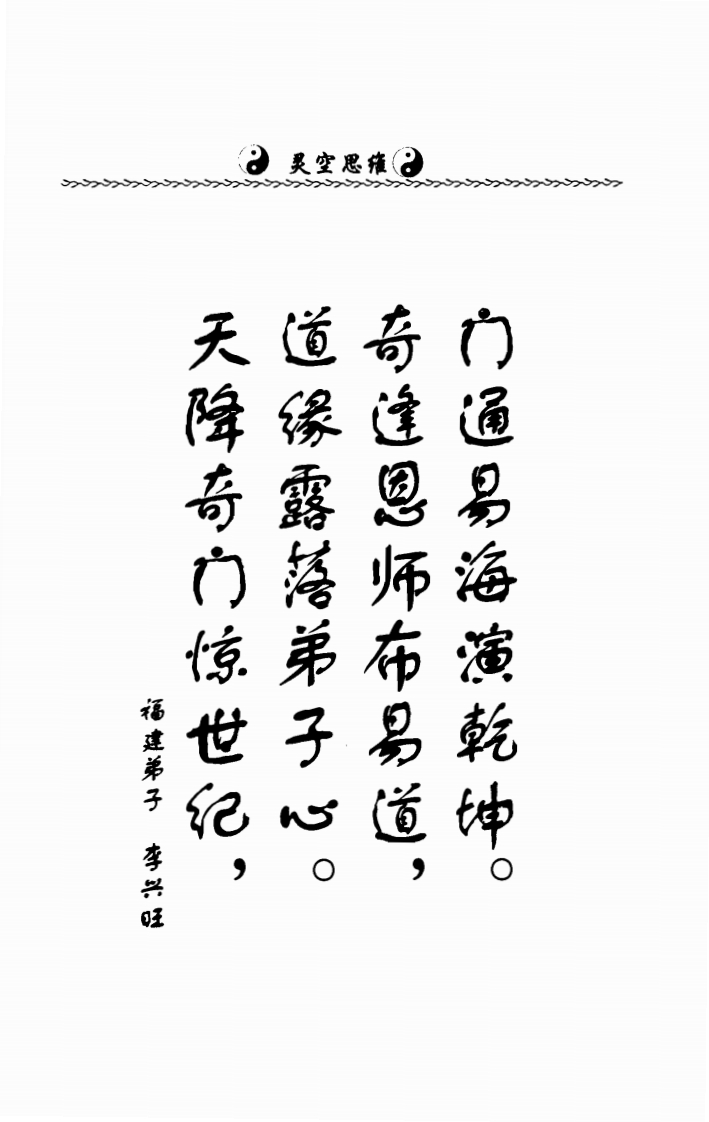 灵空思维
天降奇门惊世纪，
道缘露落弟子心。
奇逢恩师布易道，
门通易海演乾坤。
福建弟子 李兴旺